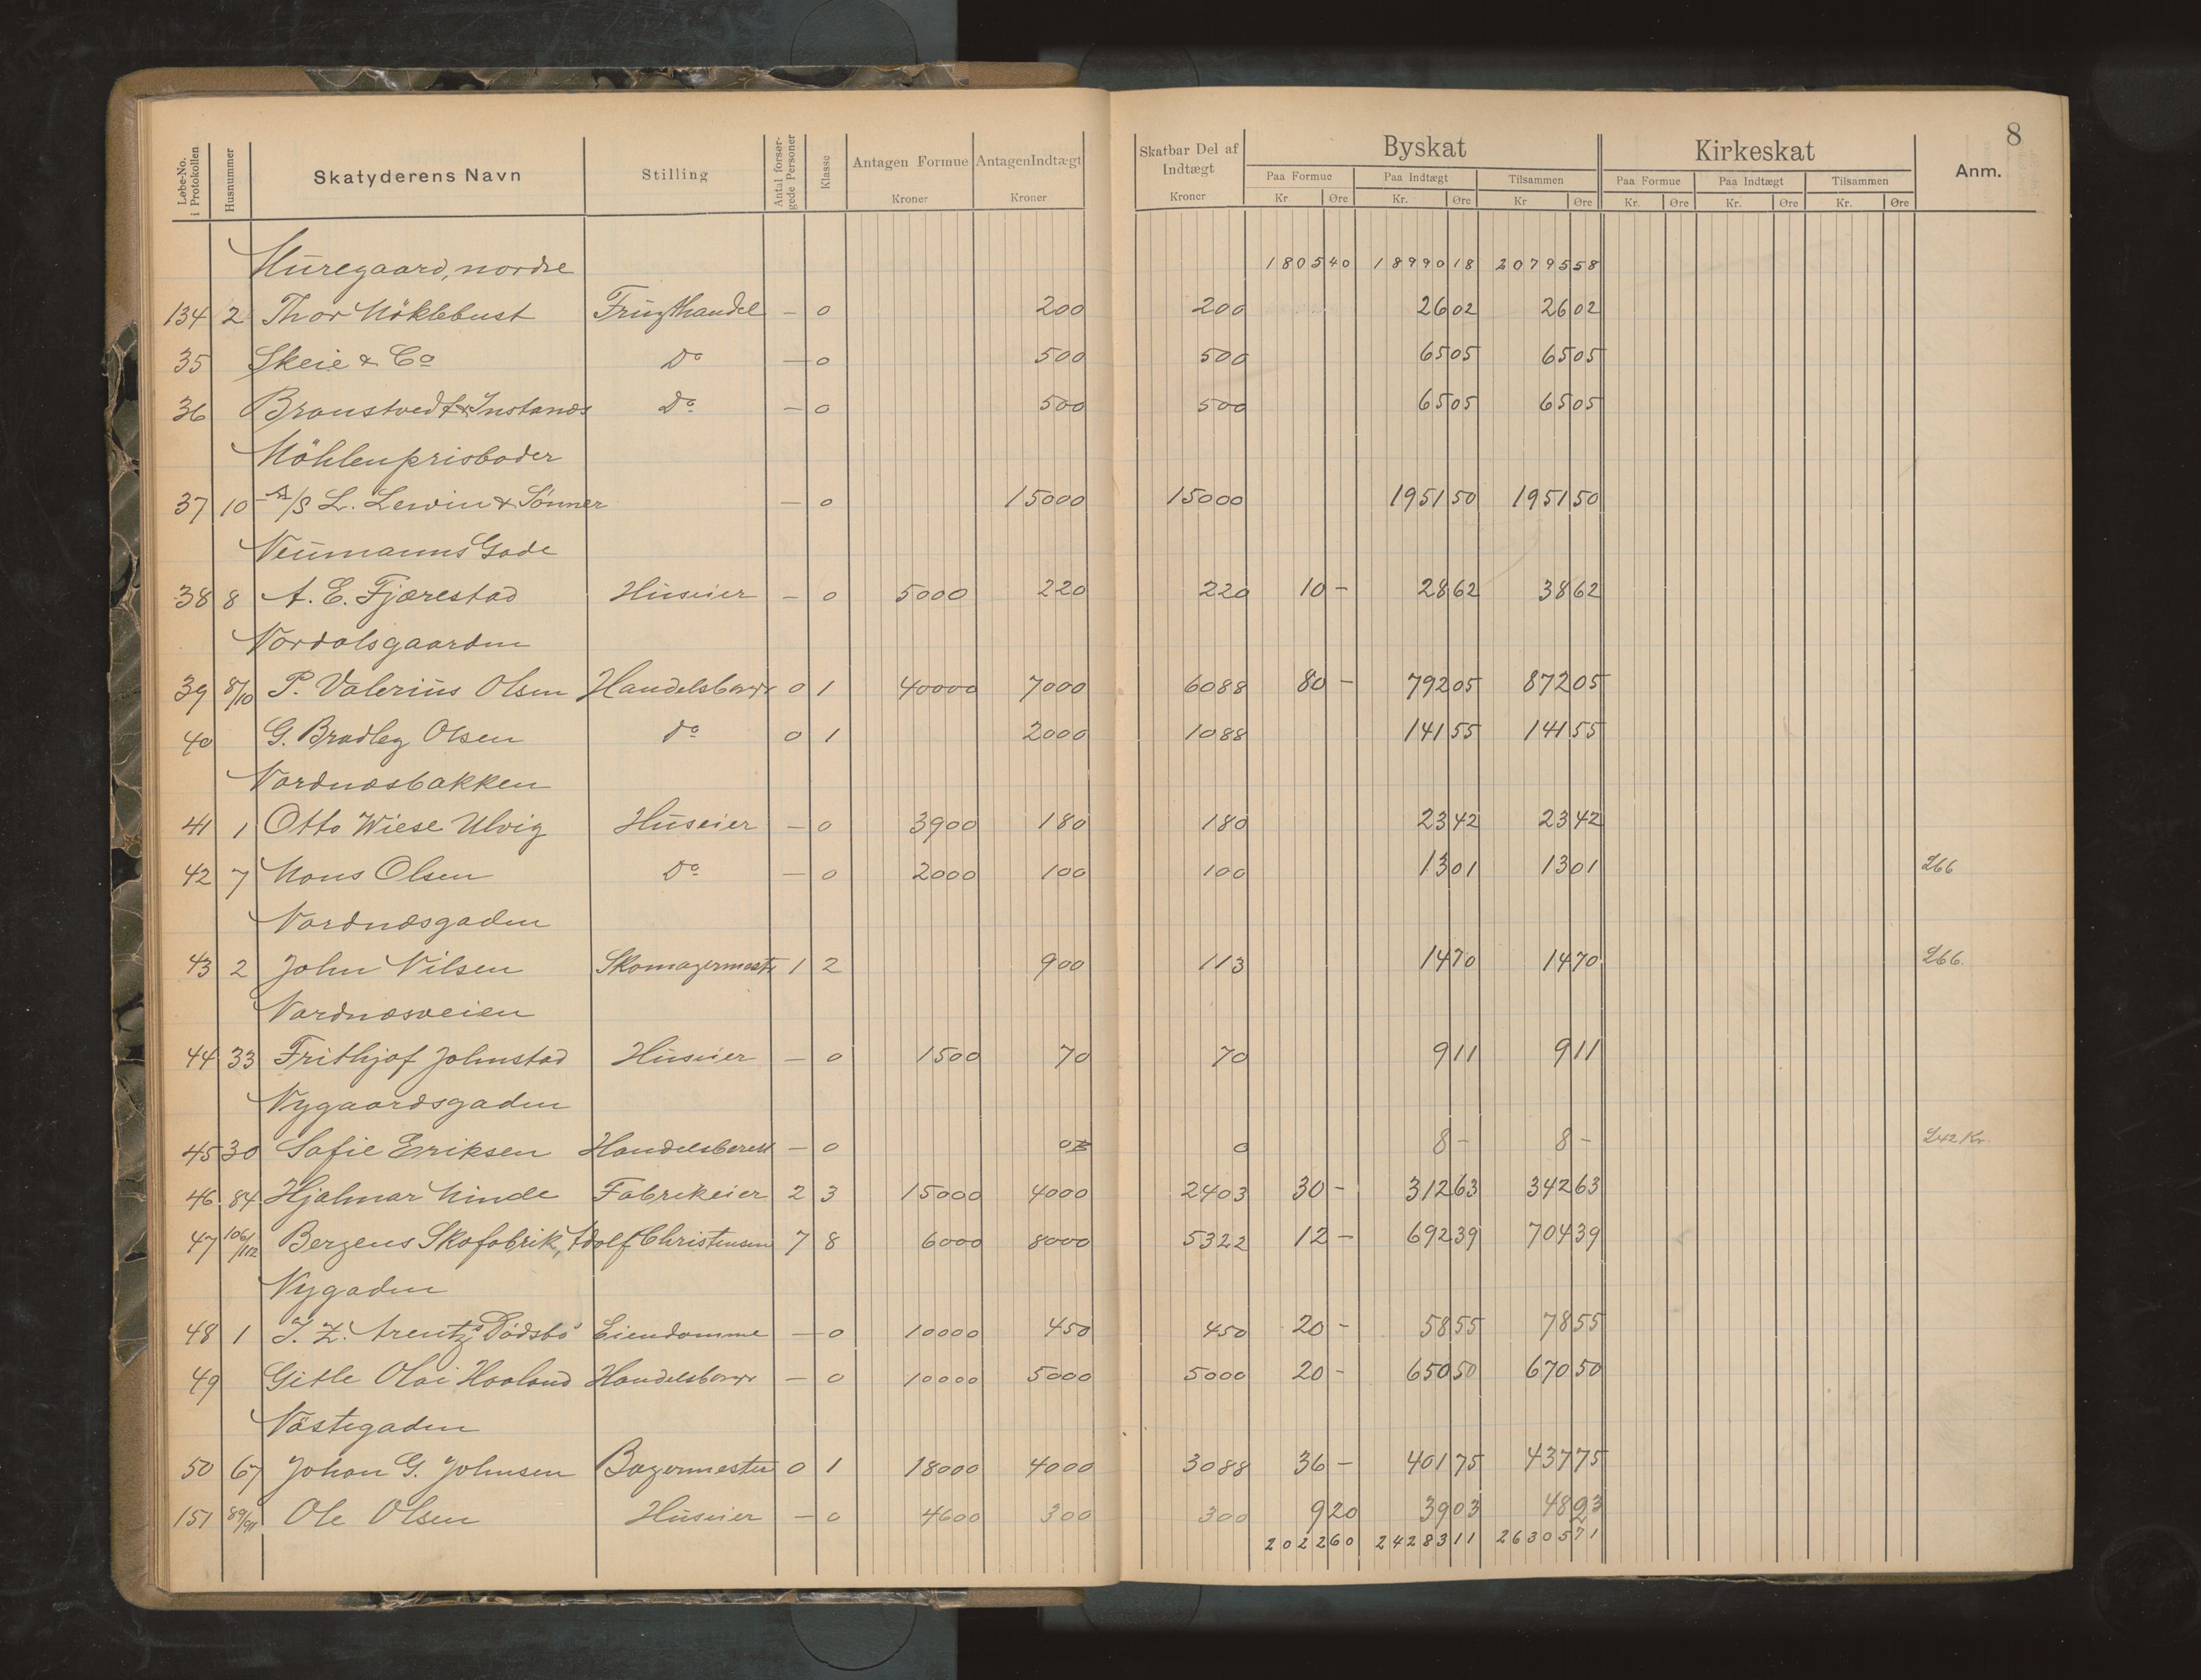 8
Løbe-No. i Protokollen Husnummer Skatyderens Navn Stilling Antal forsørgede Personer Klasse Antagen Formue Kroner Antagen Indtægt Kroner Skatbar Del af Indtægt Kroner Byskat Paa Formue Kr Øre Paa Indtægt Kr. Øre Tilsammen Kr Øre Kirkeskat Paa Formue Kr. Øre Paa Indtægt Kr. Øre Tilsammen Kr. Øre Anm.
Muregaard, nordre 1805 40 18990 18 20795 58
134 2 Thor Möklebust Frugthandel — 0 200 200 26 02 26 02
35 Skeie & Co Do — 0 500 500 65 05 65 05
36 Branstvedt & Instanes Do — 0 500 500 65 05 65 05
Möhlenprisboder
37 10 A/S L. Lewin & Sønner — 0 15000 15000 1951 50 1951 50
Neumanns Gade
38 8 A. E. Fjærestad Huseier — 0 5000 220 220 10 — 28 62 38 62
Nordalsgaarden
39 8/10 P. Valerius Olsen Handelsborgr 0 1 40000 7000 6088 80 — 792 05 872 05
40 G. Bradley Olsen do 0 1 2000 1088 141 55 141 55
Nordnæsbakken
41 1 Otto Wiese Ulvig Huseier — 0 3900 180 180 23 42 23 42
42 7 Mons Olsen Do — 0 2000 100 100 13 01 13 01 266
Nordnæsgaden
43 2 John Nilsen Skomagermestr 1 2 900 113 14 70 14 70 266
Nordnæsveien
44 33 Frithjof Johnstad Huseier — 0 1500 70 70 9 11 9 11
Nygaardsgaden
45 30 Sofie Eriksen Handelsberett — 0 0 8 — 8 — 242 Kr.
46 84 Hjalmar Minde Fabrikeier 2 3 15000 4000 2403 30 — 312 63 342 63
47 106/112 Bergens Skofabrik, Adolf Christensen 7 8 6000 8000 5322 12 — 692 39 704 39
Nygaden
48 1 J. Z. Arentz' Dødsbo Eiendomme — 0 10000 450 450 20 — 58 55 78 55
49 Gitle Olai Haaland Handelsborgr — 0 10000 5000 5000 20 — 650 50 670 50
Nöstegaden
50 67 Johan G. Johnsen Bagermester 0 1 18000 4000 3088 36 — 401 75 437 75
151 89/91 Ole Olsen Huseier — 0 4600 300 300 9 20 39 03 48 23
2022 60 24283 11 26305 71